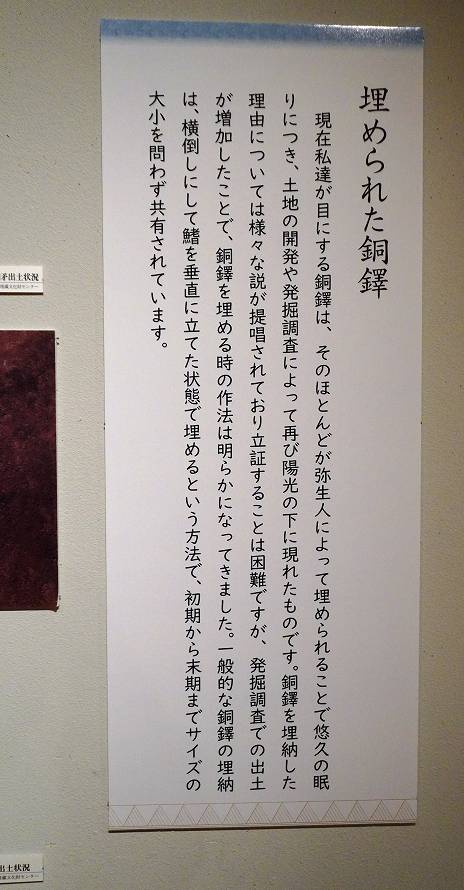 埋められた銅鐸
現在私達が目にする銅鐸は、そのほとんどが弥生人によって埋められることで悠久の眠
りにつき、土地の開発や発掘調査によって再び陽光の下に現れたものです。銅鐸を埋納した
理由については様々な説が提唱されており立証することは困難ですが、発掘調査での出土
が増加したことで、銅鐸を埋める時の作法は明らかになってきました。一般的な銅鐸の埋納
は、横倒しにして鰭を垂直に立てた状態で埋めるという方法で、初期から末期までサイズの
大小を問わず共有されています。
矛出土状況
埋蔵文化財センター
出土状況
埋蔵文化財センター